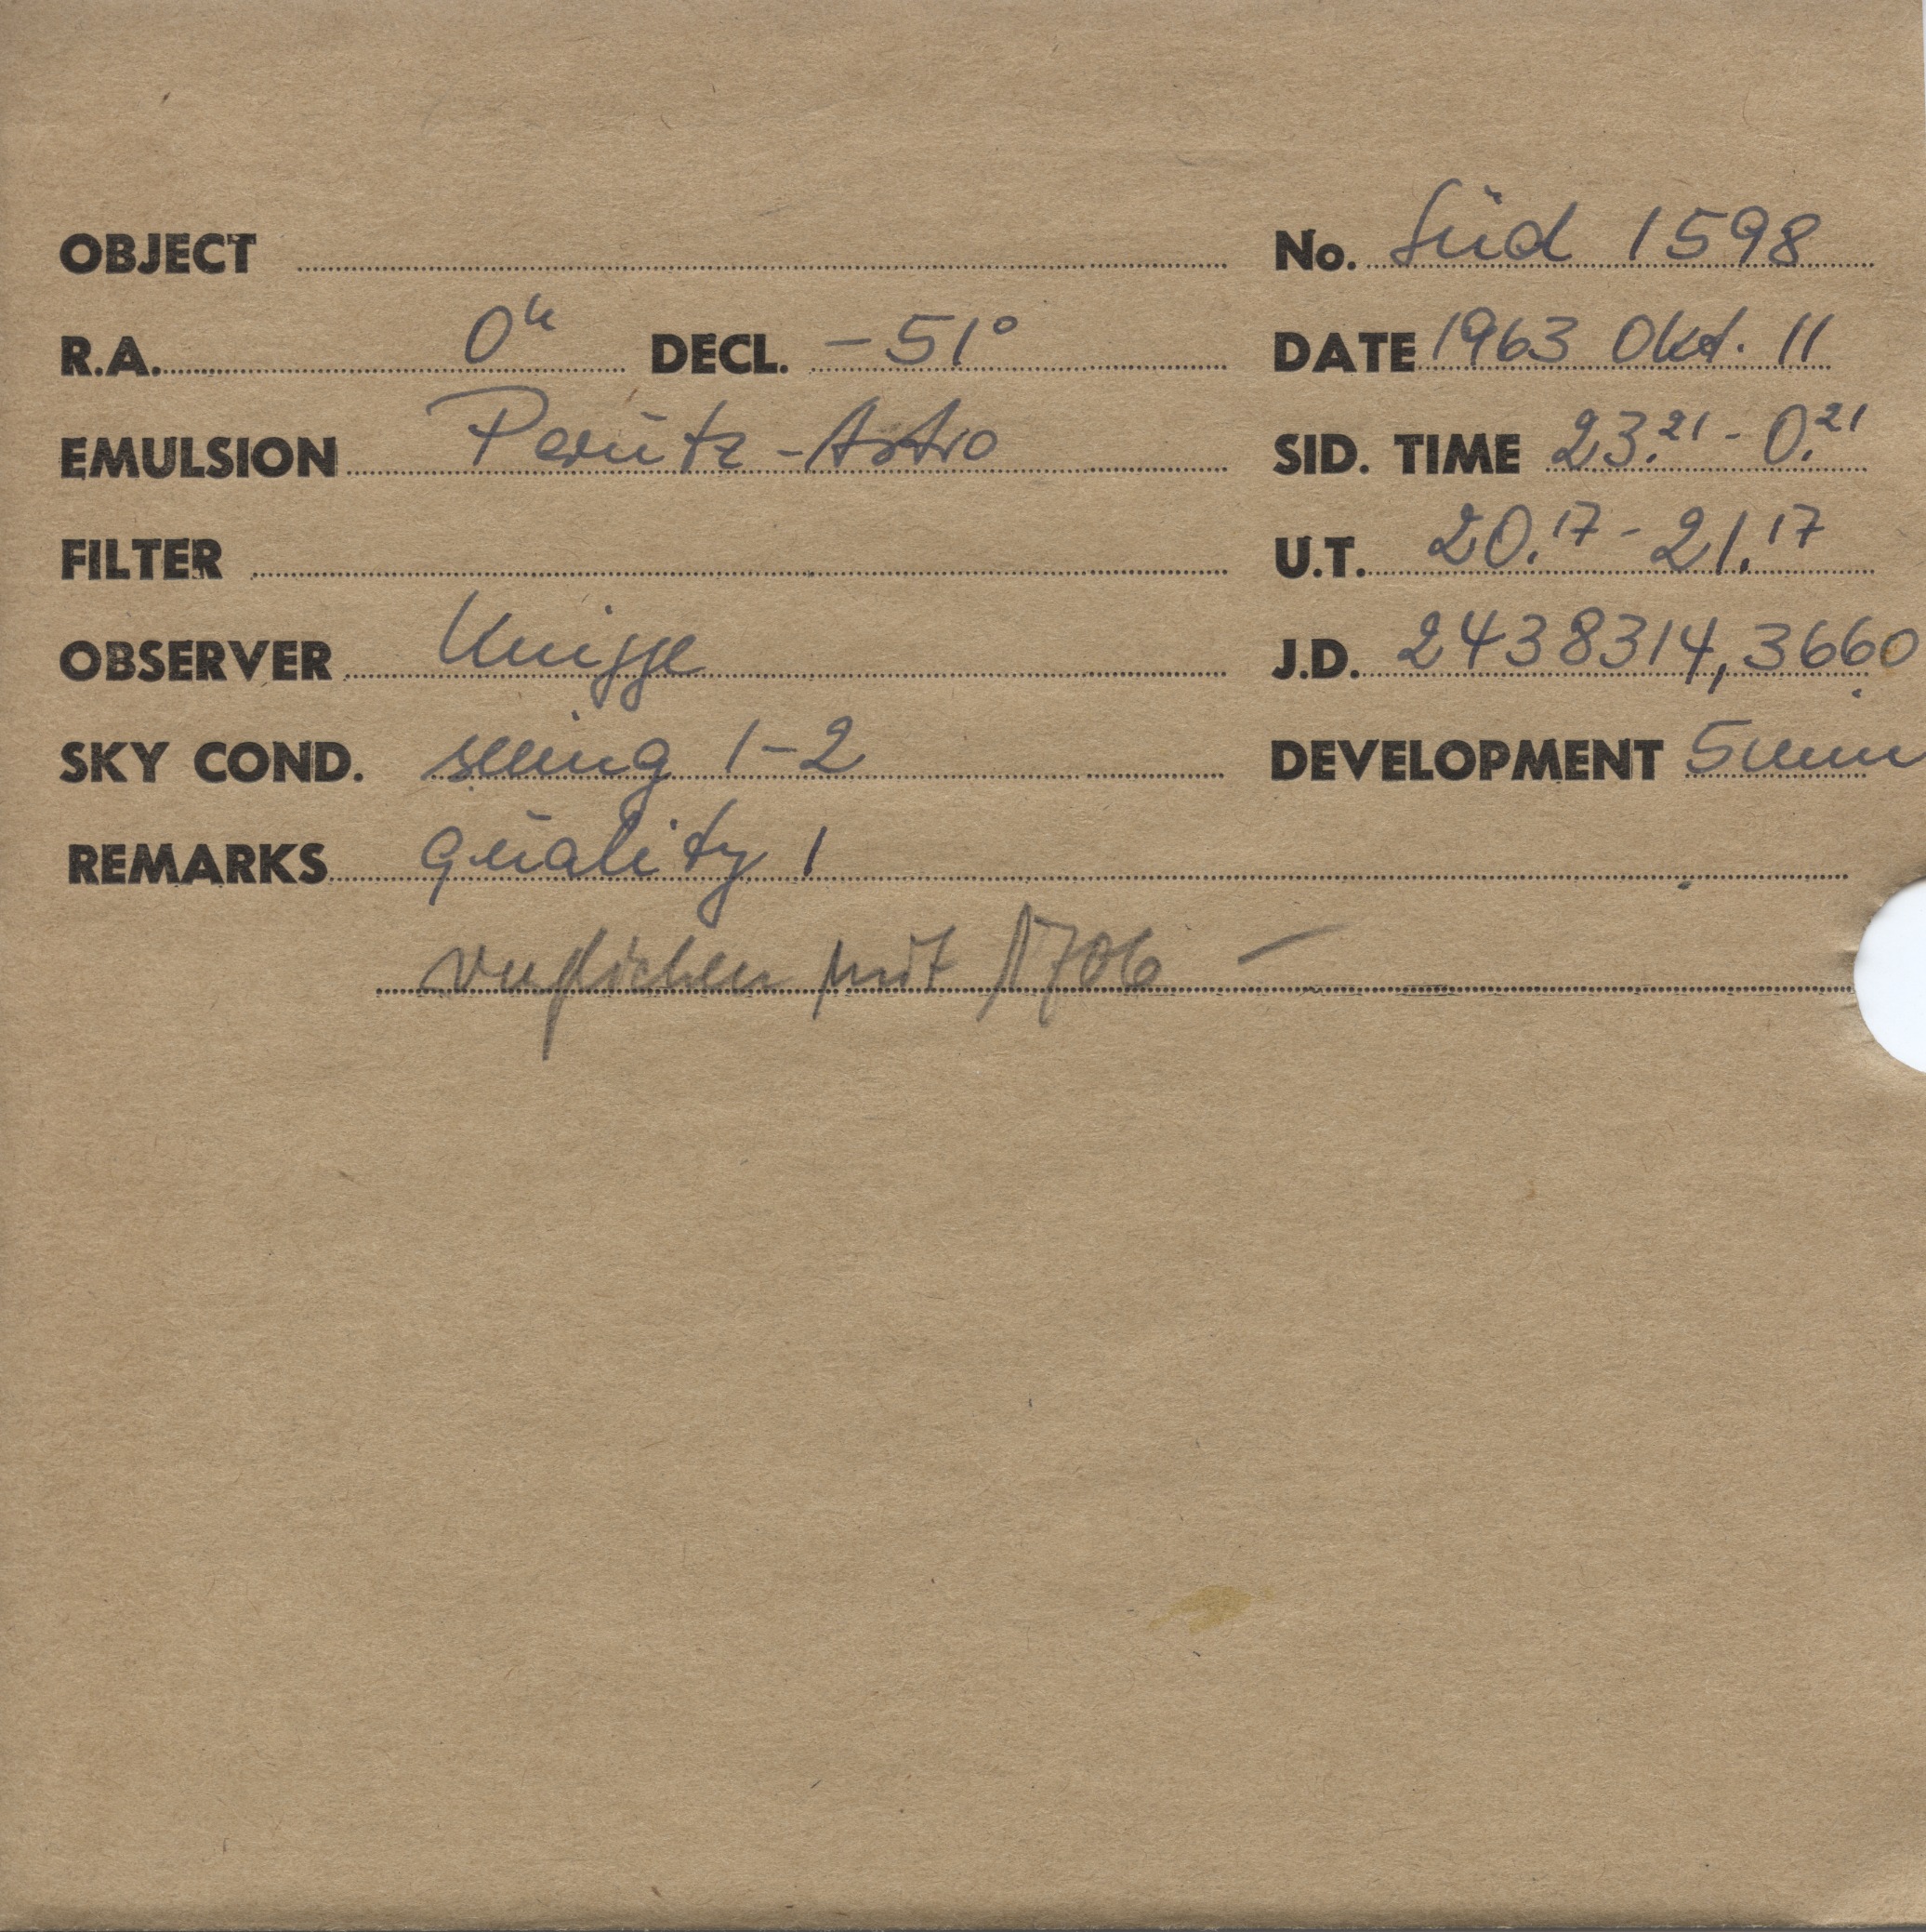 OBJECT No. Süd 1598
R.A. 0h DECL. -51° DATE 1963 Okt. 11
EMULSION Perutz-Astro SID. TIME 23.21 - 0.21
FILTER U.T. 20.17 - 21.17
OBSERVER Knigge J.D. 2438314,3660
SKY COND. seeing 1-2 DEVELOPMENT 5 min
REMARKS quality 1
verglichen mit 1706 —